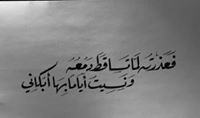 فَعَذَرتُه لمَّا تساقطَ دمعُه
ونسيتُ أيامًا بها أبكاني